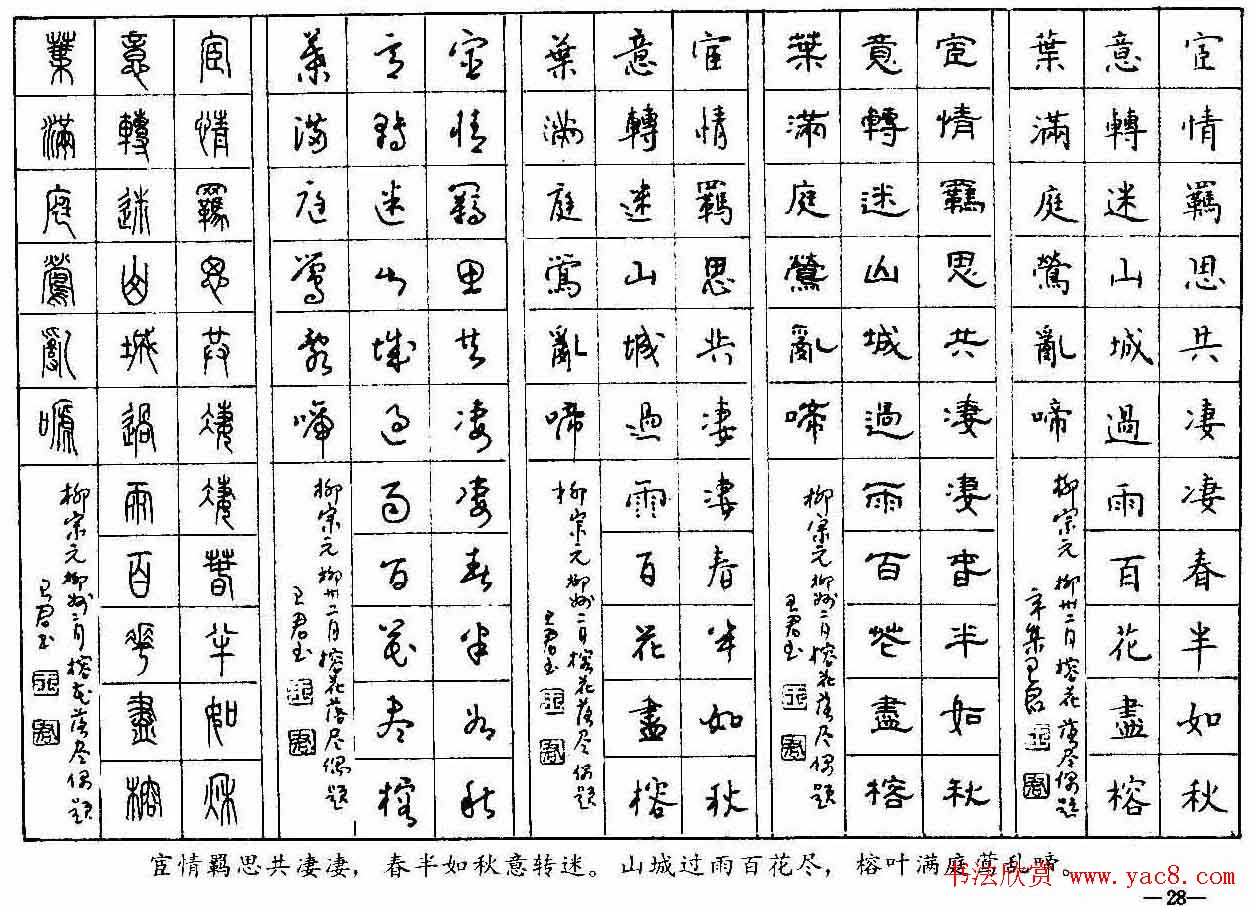 宦情羈思共凄凄春半如秋
意轉迷山城過雨百花盡榕
葉滿庭鶯亂啼
柳宗元柳州二月榕花落尽偶题
辛集王君
宦情羈思共淒淒春半如秋
意轉迷山城過雨百花盡榕
葉滿庭鶯亂啼
柳宗元柳州二月榕花落尽偶题
王君书
宦情羈思共淒淒春半如秋
意轉迷山城過雨百花盡榕
葉滿庭鶯亂啼
柳宗元柳州二月榕花落尽偶题
王君书
宦情羈思共淒淒春半如秋
意轉迷山城過雨百花盡榕
葉滿庭鶯亂啼
柳宗元柳州二月榕花落尽偶题
王君书
宦情羈思共淒淒春半如秋
意轉迷山城過雨百花盡榕
葉滿庭鶯亂啼
柳宗元柳州二月榕花落尽偶题
王君书
宦情羁思共凄凄，春半如秋意转迷。山城过雨百花尽，榕叶满庭莺乱啼。
书法欣赏 www.yac8.com
—28—